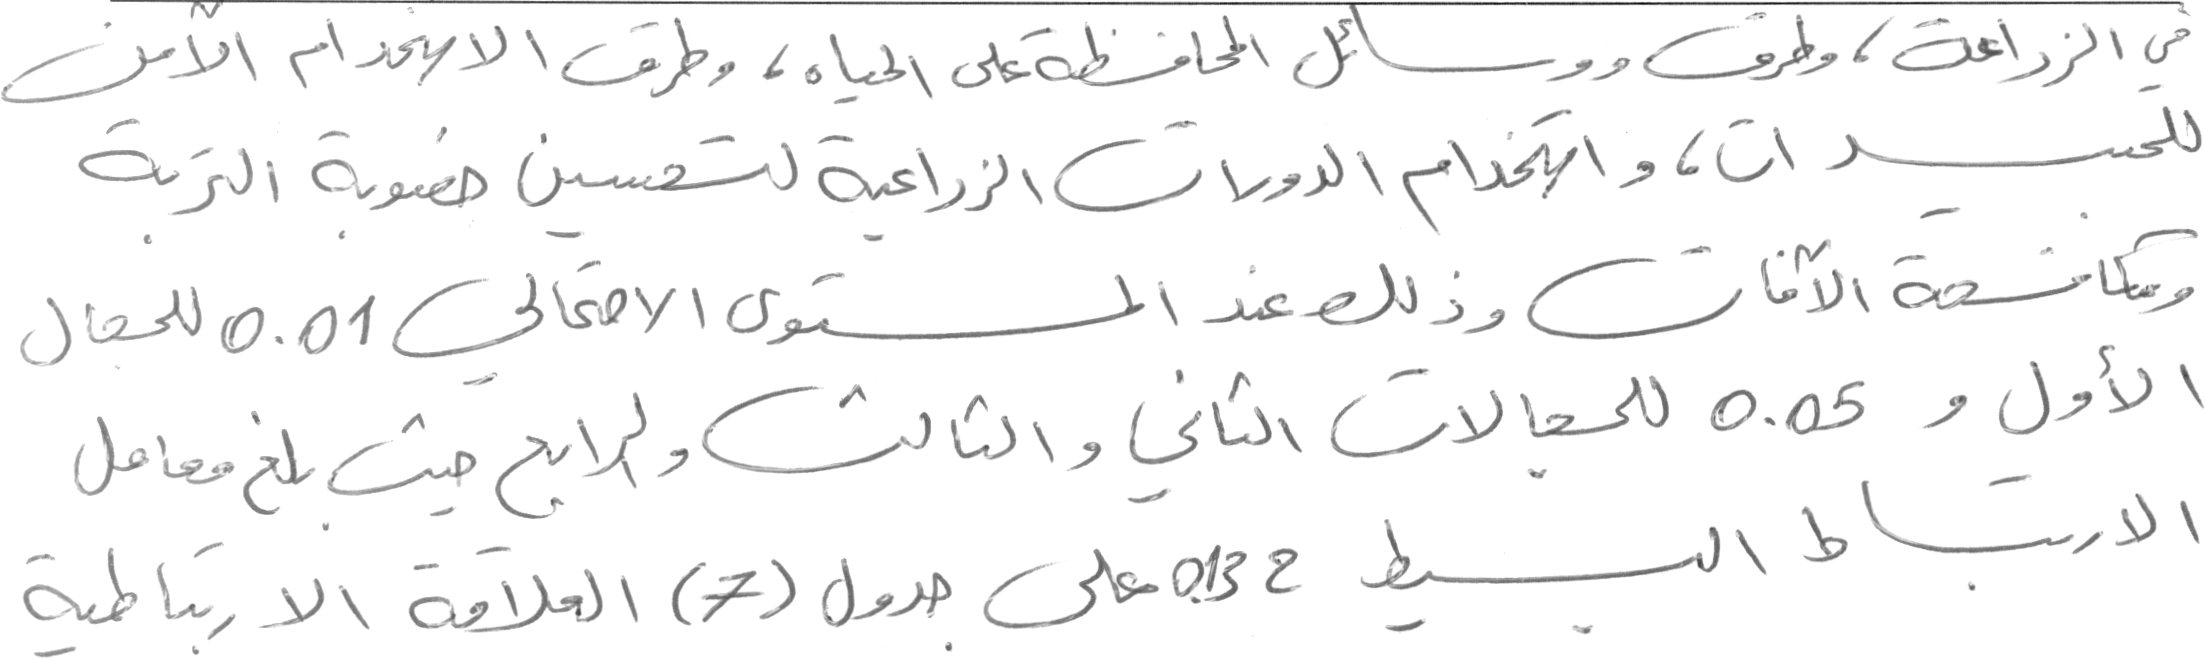 في الزراعة، وطرق ووسائل المحافظة على المياه، وطرق الاستخدام الآمن
للمبيدات، واستخدام الدورات الزراعية لتحسين خصوبة التربة
ومكافحة الآفات وذلك عند المستوى الاحتمالي 0.01 للمجال
الأول و 0.05 للمجالات الثاني والثالث والرابع حيث بلغ معامل
الارتباط البسيط 0.132 على جدول (7) العلاقة الارتباطية